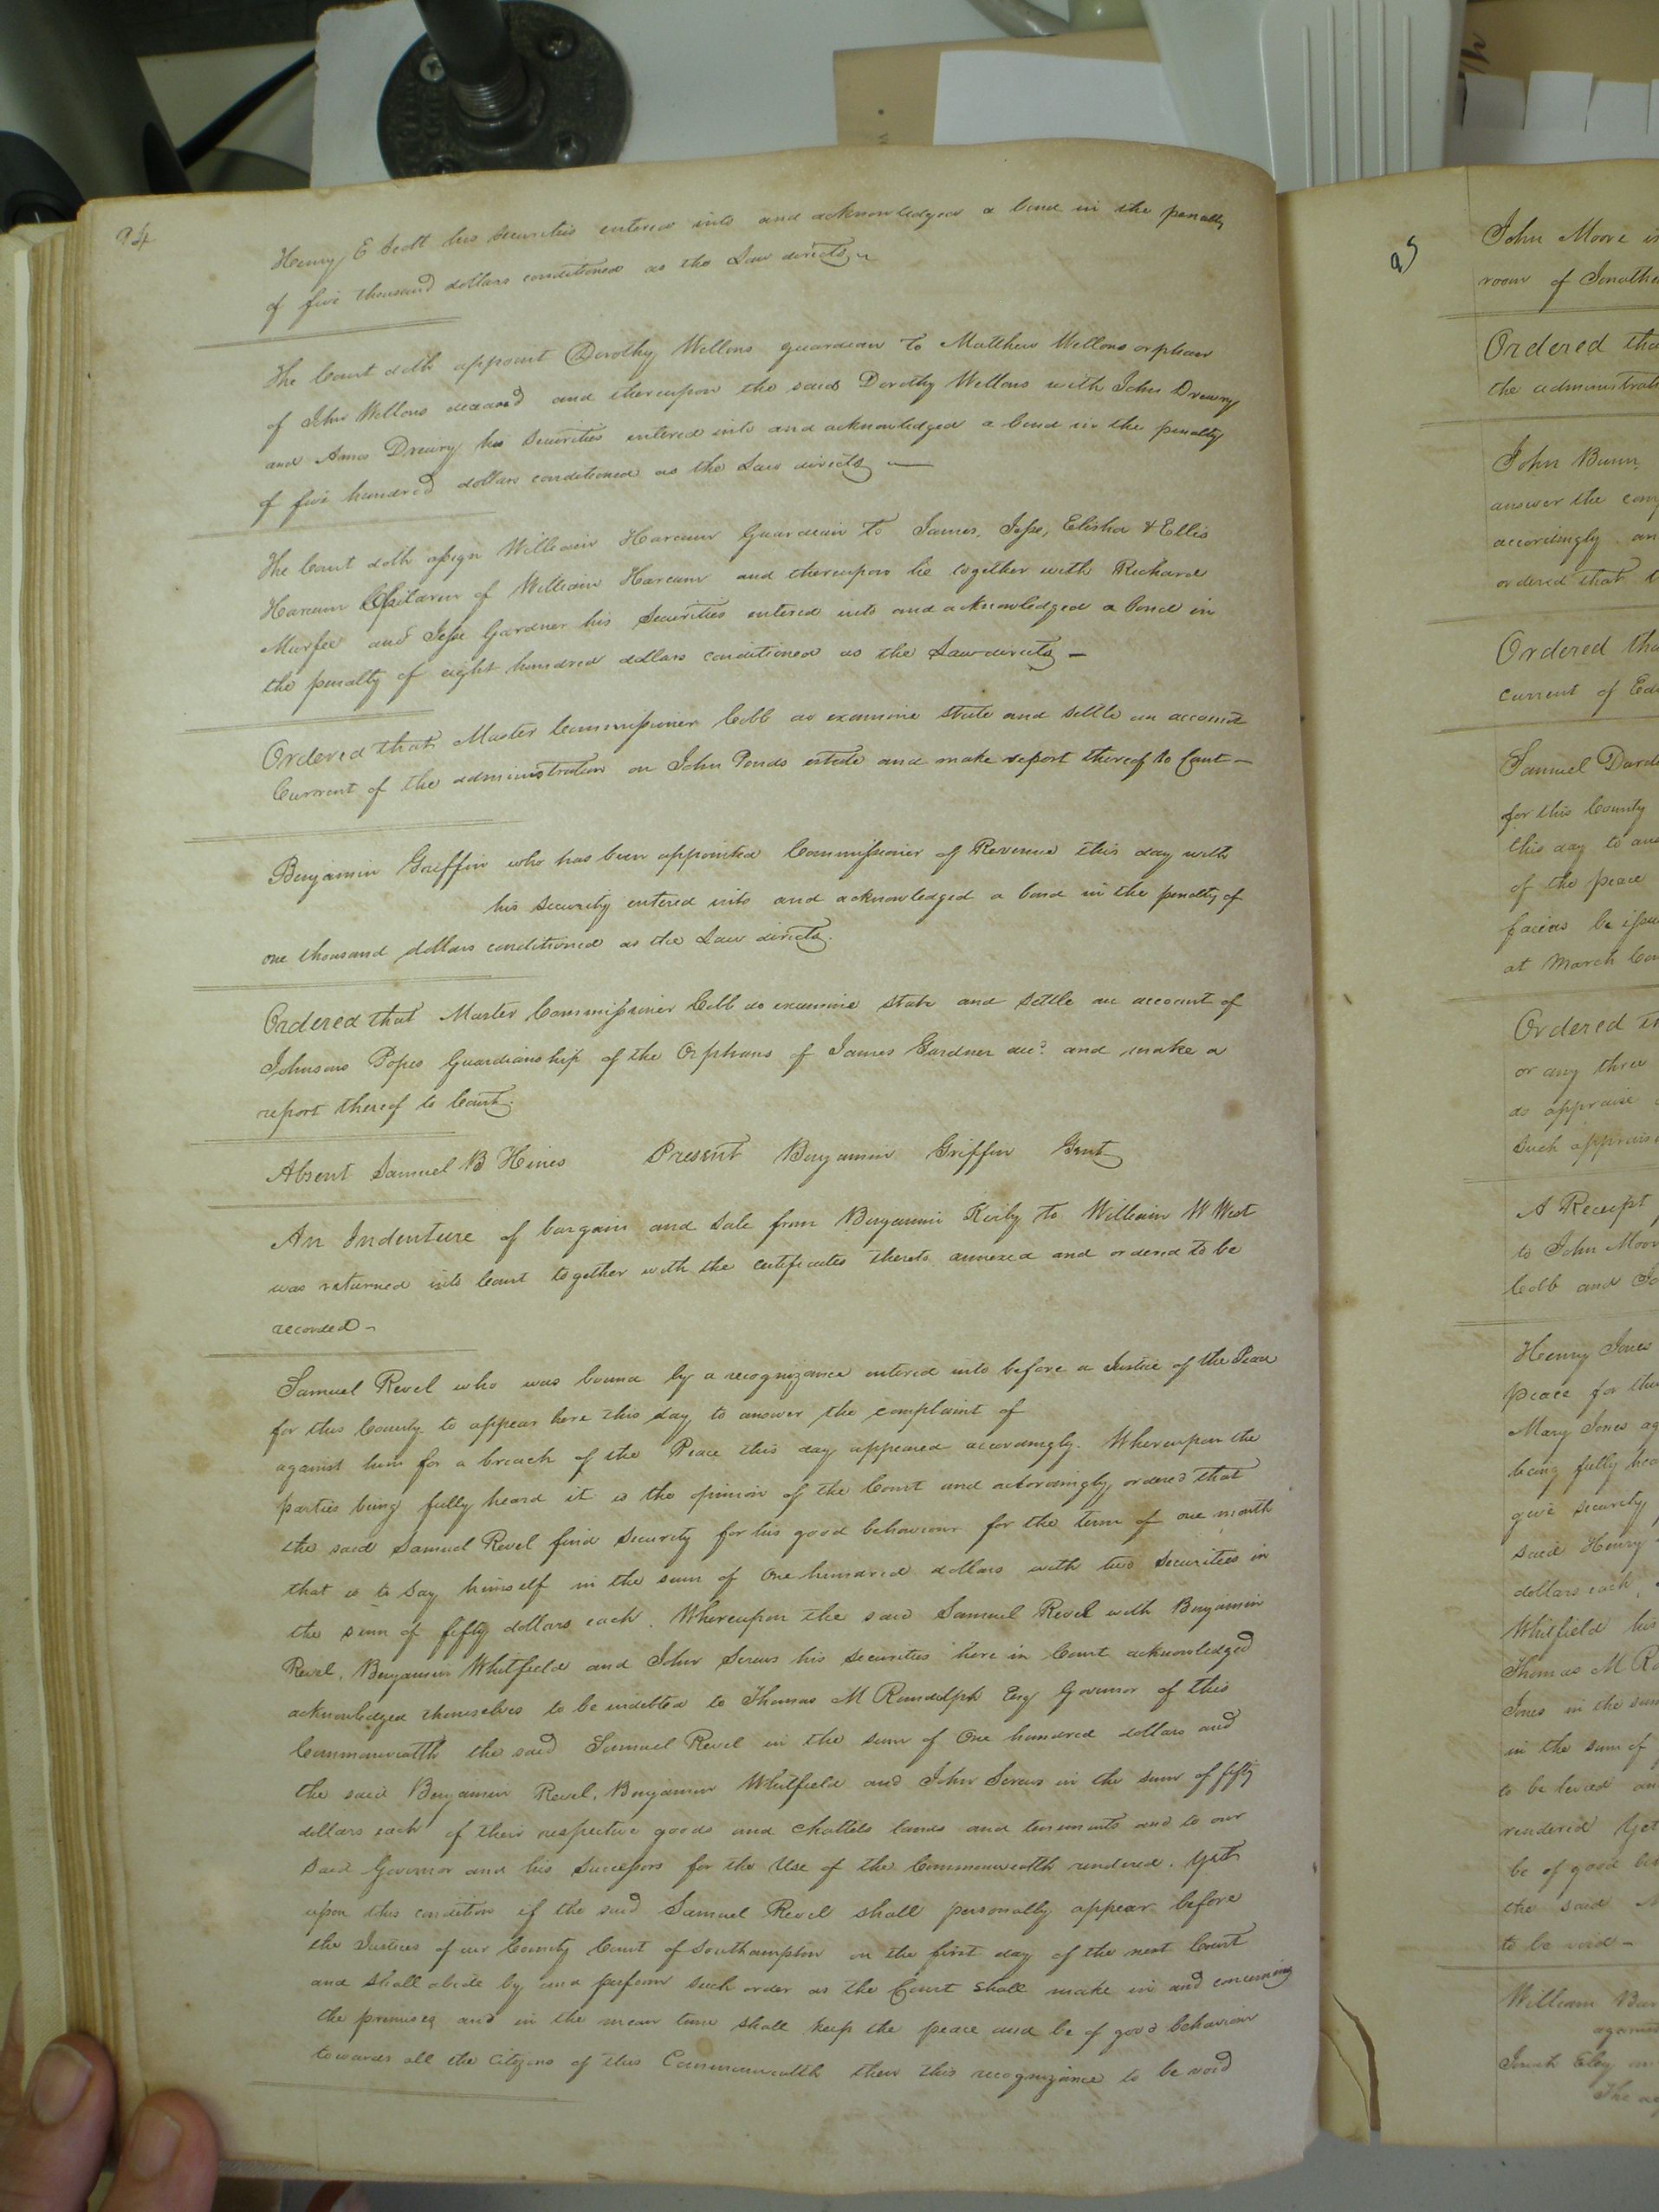 94
Henry E Scott his securities entered into and acknowledged a bond in the penalty
of five thousand dollars conditioned as the Law directs
The Court doth appoint Dorothy Wellons guardian to Matthew Wellons orphan
of John Wellons deceased and thereupon the said Dorothy Wellons with John Drewry
and Amos Drewry his securities entered into and acknowledged a bond in the penalty
of five hundred dollars conditioned as the Law directs —
The Court doth assign William Harcum Guardian to James, Jesse, Elisha & Ellis
Harcum Children of William Harcum and thereupon he together with Richard
Murfee and Jesse Gardner his Securities entered into and acknowledged a bond in
the penalty of eight hundred dollars conditioned as the Law directs —
Ordered that Master Commissioner Cobb do examine state and settle an account
Current of the administration on John Ponds estate and make report thereof to Court —
Benjamin Griffin who has been appointed Commissioner of Revenue this day with
his security entered into and acknowledged a bond in the penalty of
one thousand dollars conditioned as the Law directs.
Ordered that Master Commissioner Cobb do examine state and settle an account of
Johnsons Popes Guardianship of the Orphans of James Gardner decd. and make a
report thereof to Court.
Absent Samuel B Hines Present Benjamin Griffin Gent
An Indenture of bargain and sale from Benjamin Kirby to William W West
was returned into Court together with the certificates thereto annexed and ordered to be
recorded —
Samuel Revel who was bound by a recognizance entered into before a Justice of the Peace
for this County to appear here this day to answer the complaint of
against him for a breach of the Peace this day appeared accordingly. Whereupon the
parties being fully heard it is the opinion of the Court and accordingly ordered that
the said Samuel Revel find security for his good behaviour for the term of one month
that is to say himself in the sum of One hundred dollars with two Securities in
the sum of fifty dollars each. Whereupon the said Samuel Revel with Benjamin
Revel, Benjamin Whitfield and John Screws his securities here in Court acknowledged
acknowledged themselves to be indebted to Thomas M Randolph Esq Governor of this
Commonwealth the said Samuel Revel in the sum of One hundred dollars and
the said Benjamin Revel, Benjamin Whitfield and John Screws in the sum of fifty
dollars each of their respective goods and chattels lands and tenements and to our
said Governor and his successors for the Use of the Commonwealth rendered. Yet
upon this condition if the said Samuel Revel shall personally appear before
the Justices of our County Court of Southampton on the first day of the next Court
and shall abide by and perform such order as the Court shall make in and concerning
the premises and in the mean time shall keep the peace and be of good behaviour
towards all the Citizens of this Commonwealth then this recognizance to be void
95
John Moore
room of
Ordered
the
John Bunn
answer the
accordingly
ordered that
Ordered
current of
Samuel
for this County
this day to
of the peace
facias be
at March
Ordered
or any three
do appraise
such
A Receipt
to John
Cobb and
Henry Jones
peace for
Mary Jones
being fully
give security
said Henry
dollars each
Whitfield his
Thomas M
Jones in the
in the sum of
to be levied
rendered
be of good
the said
to be void —
William